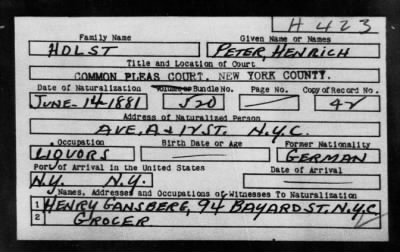 H 423
Family Name Given Name or Names
HOLST PETER, HENRICH
Title and Location of Court
COMMON PLEAS COURT, NEW YORK COUNTY.
Date of Naturalization Volume or Bundle No. Page No. Copy of Record No.
JUNE-14-1881 520 42
Address of Naturalized Person
AVE, A & 12 ST. N.Y.C.
Occupation Birth Date or Age Former Nationality
LIQUORS GERMAN
Port of Arrival in the United States Date of Arrival
N.Y. N.Y.
Names, Addresses and Occupations of Witnesses To Naturalization
1 HENRY GANSBERG, 94 BAYARD ST. N.Y.C.
2 GROCER